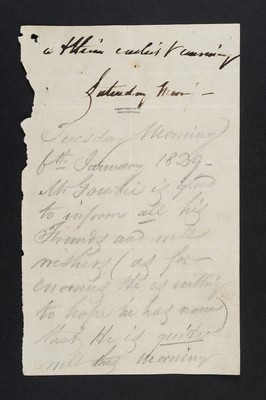 a
Saturday Morn'g
Tuesday Morning
6th January 1829
Mr Gowrie is glad
to inform all his
Friends and well
wishers (as for
enemies He is willing
to hope he has none)
that He is quite
well this Morning